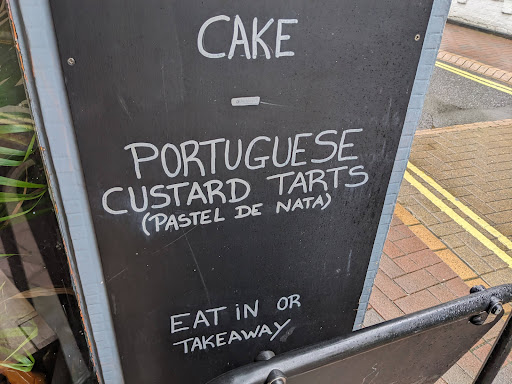 CAKE
-
PORTUGUESE
CUSTARD TARTS
(PASTEL DE NATA)
EAT IN OR
TAKEAWAY